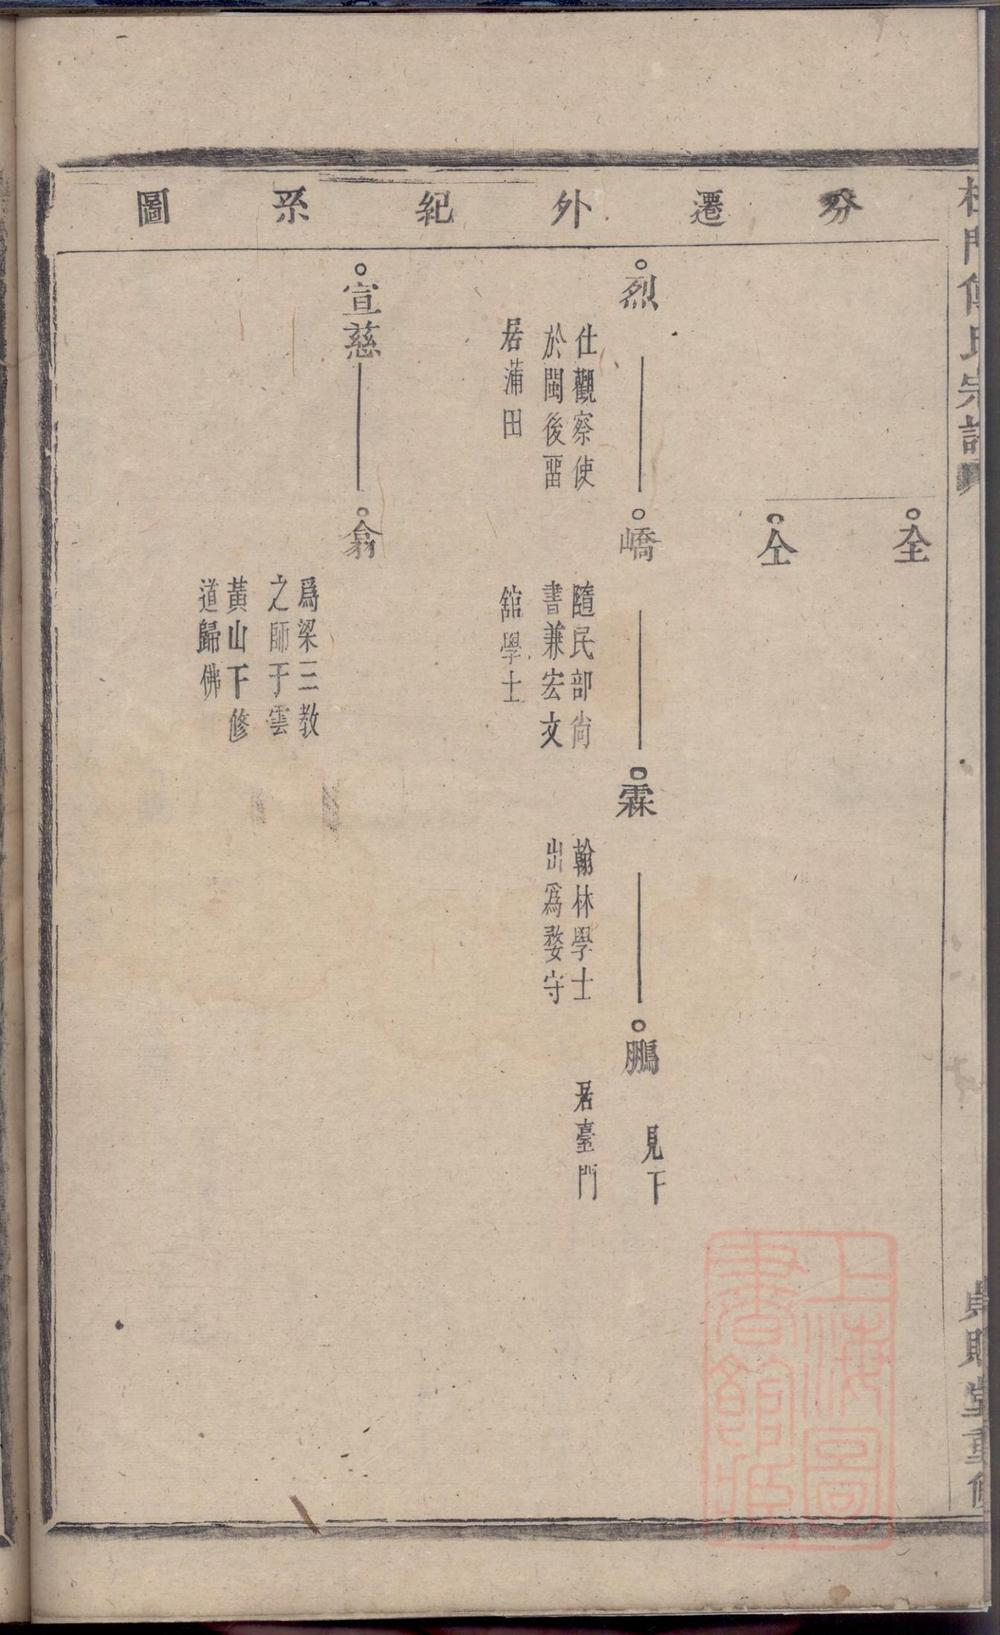 分遷外紀系圖
仝
仝
烈
仕觀察使
於閩後畱
居蒲田
嶠
隨民部尙
書兼宏文
舘學士
霖
翰林學士
出爲婺守
鵬
見下
居臺門
宣慈
翕
爲梁三教
之師于雲
黃山下修
道歸佛
上海圖
書館藏